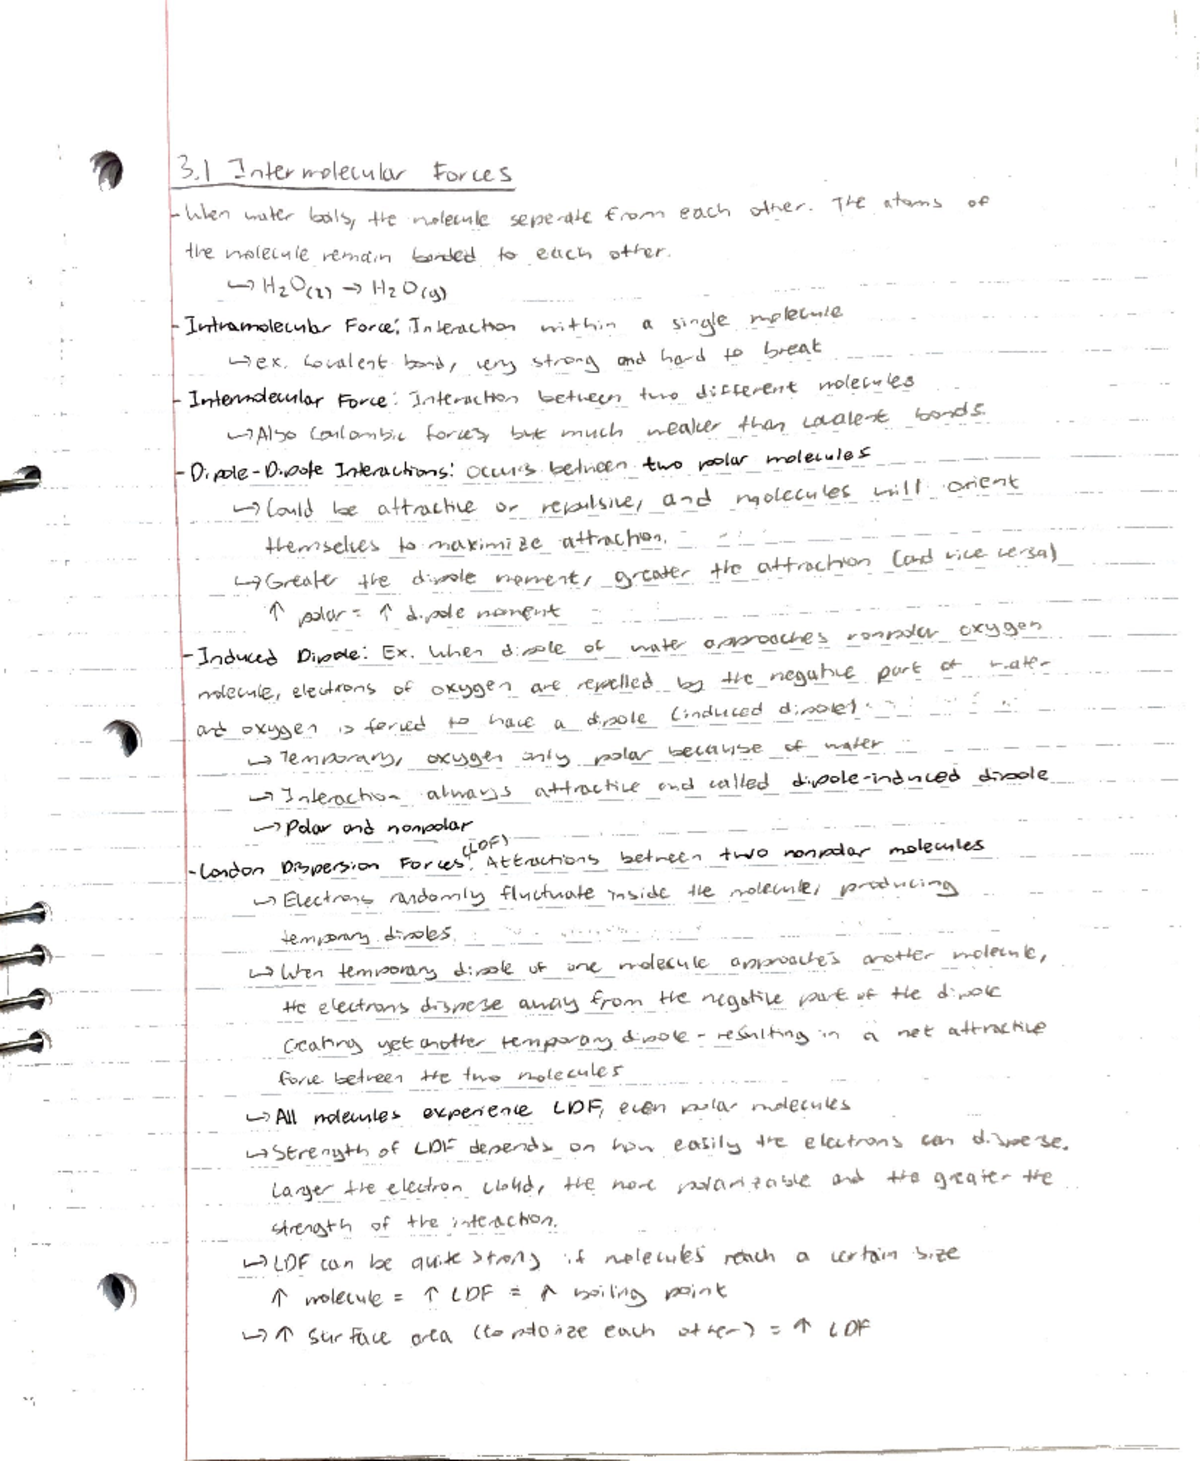 3.1 Intermolecular Forces
- When water boils, the molecule seperate from each other. The atoms of
the molecule remain bonded to each other.
↪ H₂O(l) → H₂O(g)
- Intramolecular Force: Interaction within a single molecule
↪ ex. Covalent bond, very strong and hard to break
- Intermolecular Force: Interaction between two different molecules
↪ Also Coulombic forces, but much weaker than covalent bonds.
- Dipole-Dipole Interactions: Occurs between two polar molecules
↪ Could be attractive or repulsive, and molecules will orient
themselves to maximize attraction.
↪ Greater the dipole moment, greater the attraction (and vice versa)
↑ polar = ↑ dipole moment
- Induced Dipole: Ex. When dipole of water approaches nonpolar oxygen
molecule, electrons of oxygen are repelled by the negative part of water
and oxygen is forced to have a dipole (induced dipole).
↪ Temporary, oxygen only polar because of water
↪ Interaction always attractive and called dipole-induced dipole
↪ Polar and nonpolar
- London Dispersion Forces (LDF): Attractions between two nonpolar molecules
↪ Electrons randomly fluctuate inside the molecule, producing
temporary dipoles.
↪ When temporary dipole of one molecule approaches another molecule,
the electrons disperse away from the negative part of the dipole
creating yet another temporary dipole - resulting in a net attractive
force between the two molecules
↪ All molecules experience LDF, even polar molecules
↪ Strength of LDF depends on how easily the electrons can disperse.
Larger the electron cloud, the more polarizable and the greater the
strength of the interaction.
↪ LDF can be quite strong if molecules reach a certain size
↑ molecule = ↑ LDF = ↑ boiling point
↪ ↑ Surface area (to polarize each other) = ↑ LDF